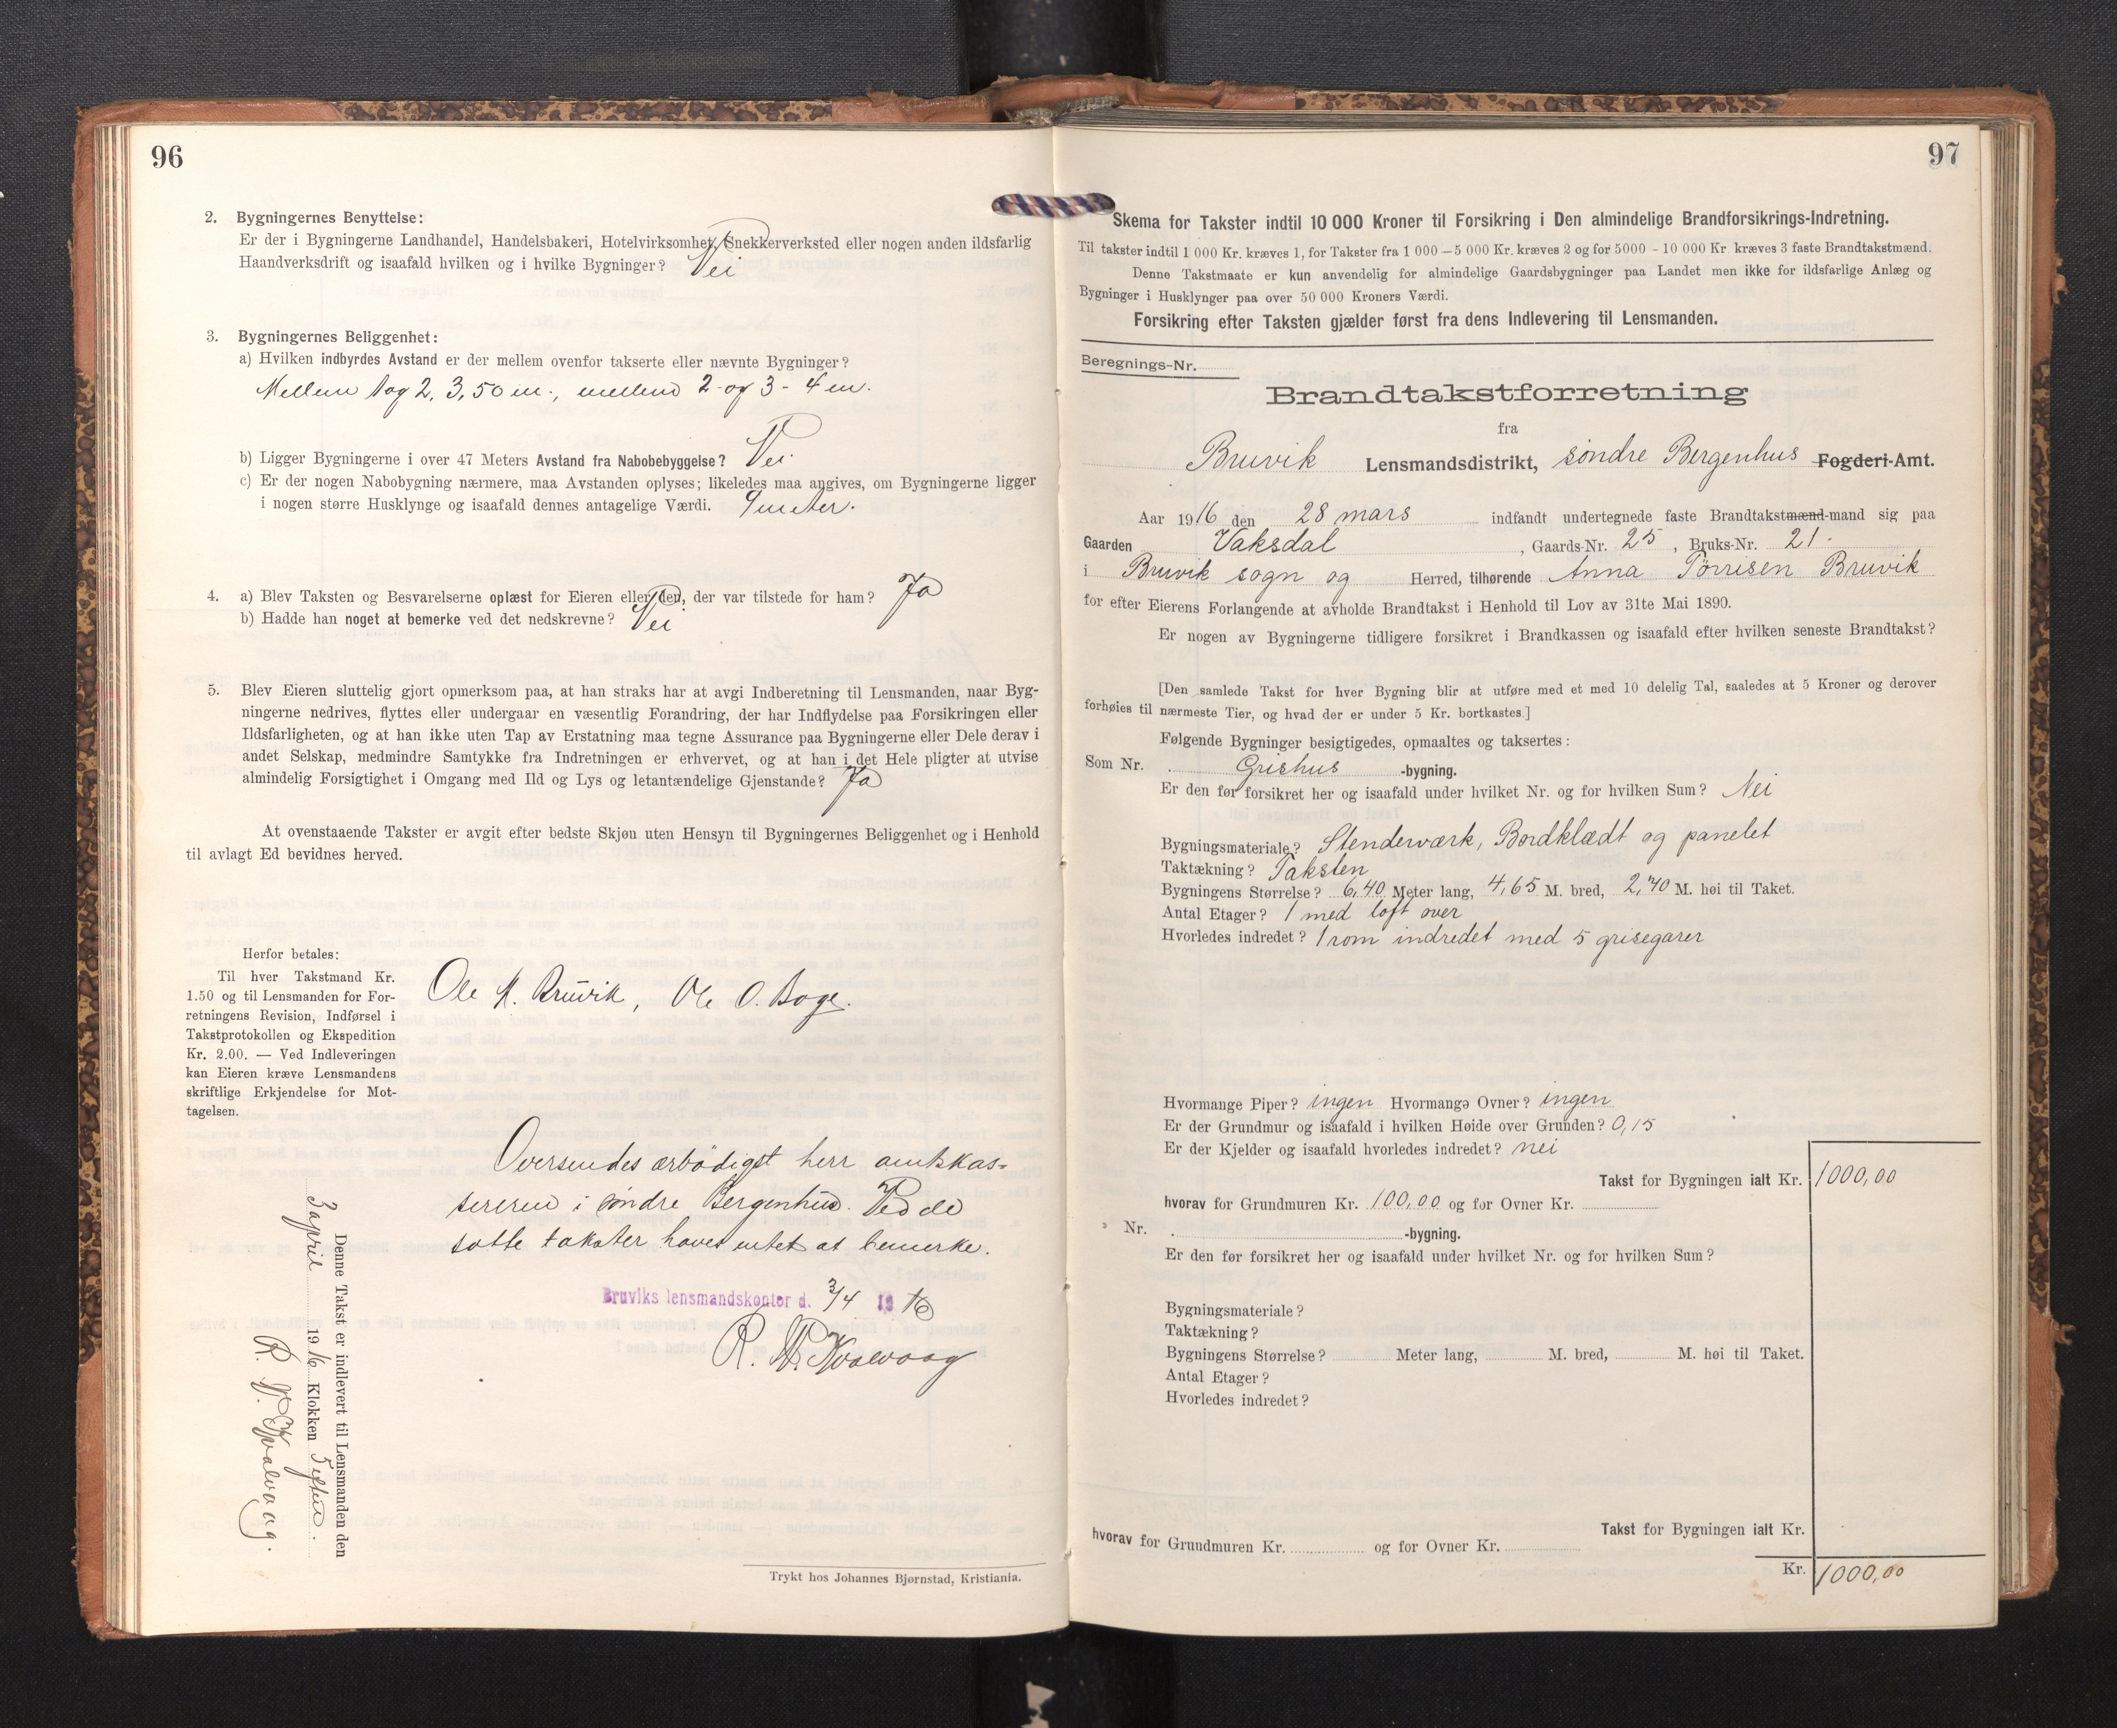 96
2. Bygningernes Benyttelse:
Er der i Bygningerne Landhandel, Handelsbakeri, Hotelvirksomhet, Snekkerverksted eller nogen anden ildsfarlig
Haandverksdrift og isaafald hvilken og i hvilke Bygninger? Nei
3. Bygningernes Beliggenhet:
a) Hvilken indbyrdes Avstand er der mellem ovenfor takserte eller nævnte Bygninger?
Mellem 1 og 2, 3,50 m., mellem 2 og 3 - 4 m.
b) Ligger Bygningerne i over 47 Meters Avstand fra Nabobebyggelse? Nei.
c) Er der nogen Nabobygning nærmere, maa Avstanden oplyses; likeledes maa angives, om Bygningerne ligger
i nogen større Husklynge og isaafald dennes antagelige Værdi. 9 meter.
4. a) Blev Taksten og Besvarelserne oplæst for Eieren eller den, der var tilstede for ham? Ja
b) Hadde han noget at bemerke ved det nedskrevne? Nei
5. Blev Eieren sluttelig gjort opmerksom paa, at han straks har at avgi Indberetning til Lensmanden, naar Byg-
ningerne nedrives, flyttes eller undergaar en væsentlig Forandring, der har Indflydelse paa Forsikringen eller
Ildsfarligheten, og at han ikke uten Tap av Erstatning maa tegne Assurance paa Bygningerne eller Dele derav i
andet Selskap, medmindre Samtykke fra Indretningen er erhvervet, og at han i det Hele pligter at utvise
almindelig Forsigtighet i Omgang med Ild og Lys og letantændelige Gjenstande? Ja
At ovenstaaende Takster er avgit efter bedste Skjøn uten Hensyn til Bygningernes Beliggenhet og i Henhold
til avlagt Ed bevidnes herved.
Herfor betales:
Til hver Takstmand Kr.
1.50 og til Lensmanden for For-
retningens Revision, Indførsel i
Takstprotokollen og Ekspedition
Kr. 2.00. — Ved Indleveringen
kan Eieren kræve Lensmandens
skriftlige Erkjendelse for Mot-
tagelsen.
Ole M. Bruvik, Ole O. Boge.
Oversendes ærbödigst herr amtskas-
sereren i søndre Bergenhus. Ved de
satte takster haves intet at bemerke.
Bruviks lensmandskontor d. 3/4 1916
R. N. Kvalvaag
Denne Takst er indlevert til Lensmanden den
3 april 1916 Klokken 5 efterm.
R. N. Kvalvaag.
Trykt hos Johannes Bjørnstad, Kristiania.
97
Skema for Takster indtil 10 000 Kroner til Forsikring i Den almindelige Brandforsikrings-Indretning.
Til takster indtil 1 000 Kr. kræves 1, for Takster fra 1 000 — 5 000 Kr. kræves 2 og for 5000 - 10 000 Kr kræves 3 faste Brandtakstmænd.
Denne Takstmaate er kun anvendelig for almindelige Gaardsbygninger paa Landet men ikke for ildsfarlige Anlæg og
Bygninger i Husklynger paa over 50 000 Kroners Værdi.
Forsikring efter Taksten gjælder først fra dens Indlevering til Lensmanden.
Beregnings-Nr.
Brandtakstforretning
fra
Bruvik Lensmandsdistrikt, söndre Bergenhus Fogderi-Amt.
Aar 1916 den 28 mars indfandt undertegnede faste Brandtakstmænd-mand sig paa
Gaarden Vaksdal, Gaards-Nr. 25, Bruks-Nr. 21.
i Bruvik sogn og Herred, tilhørende Anna Tørrisen Bruvik
for efter Eierens Forlangende at avholde Brandtakst i Henhold til Lov av 31te Mai 1890.
Er nogen av Bygningerne tidligere forsikret i Brandkassen og isaafald efter hvilken seneste Brandtakst?
[Den samlede Takst for hver Bygning blir at utføre med et med 10 delelig Tal, saaledes at 5 Kroner og derover
forhøies til nærmeste Tier, og hvad der er under 5 Kr. bortkastes.]
Følgende Bygninger besigtigedes, opmaaltes og taksertes:
Som Nr. Grishus -bygning.
Er den før forsikret her og isaafald under hvilket Nr. og for hvilken Sum? Nei
Bygningsmateriale? Stenderværk, Bordklædt og panelet
Taktækning? Taksten
Bygningens Størrelse? 6,40 Meter lang, 4,65 M. bred, 2,70 M. høi til Taket.
Antal Etager? 1 med loft over
Hvorledes indredet? 1 rom indredet med 5 grisegarer
Hvormange Piper? ingen Hvormange Ovner? ingen
Er der Grundmur og isaafald i hvilken Høide over Grunden? 0,15
Er der Kjelder og isaafald hvorledes indredet? nei
Takst for Bygningen ialt Kr. 1000,00
hvorav for Grundmuren Kr. 100,00 og for Ovner Kr.
" Nr. -bygning.
Er den før forsikret her og isaafald under hvilket Nr. og for hvilken Sum?
Bygningsmateriale?
Taktækning?
Bygningens Størrelse? Meter lang, M. bred, M. høi til Taket.
Antal Etager?
Hvorledes indredet?
Takst for Bygningen ialt Kr.
hvorav for Grundmuren Kr. og for Ovner Kr.
Kr. 1000,00